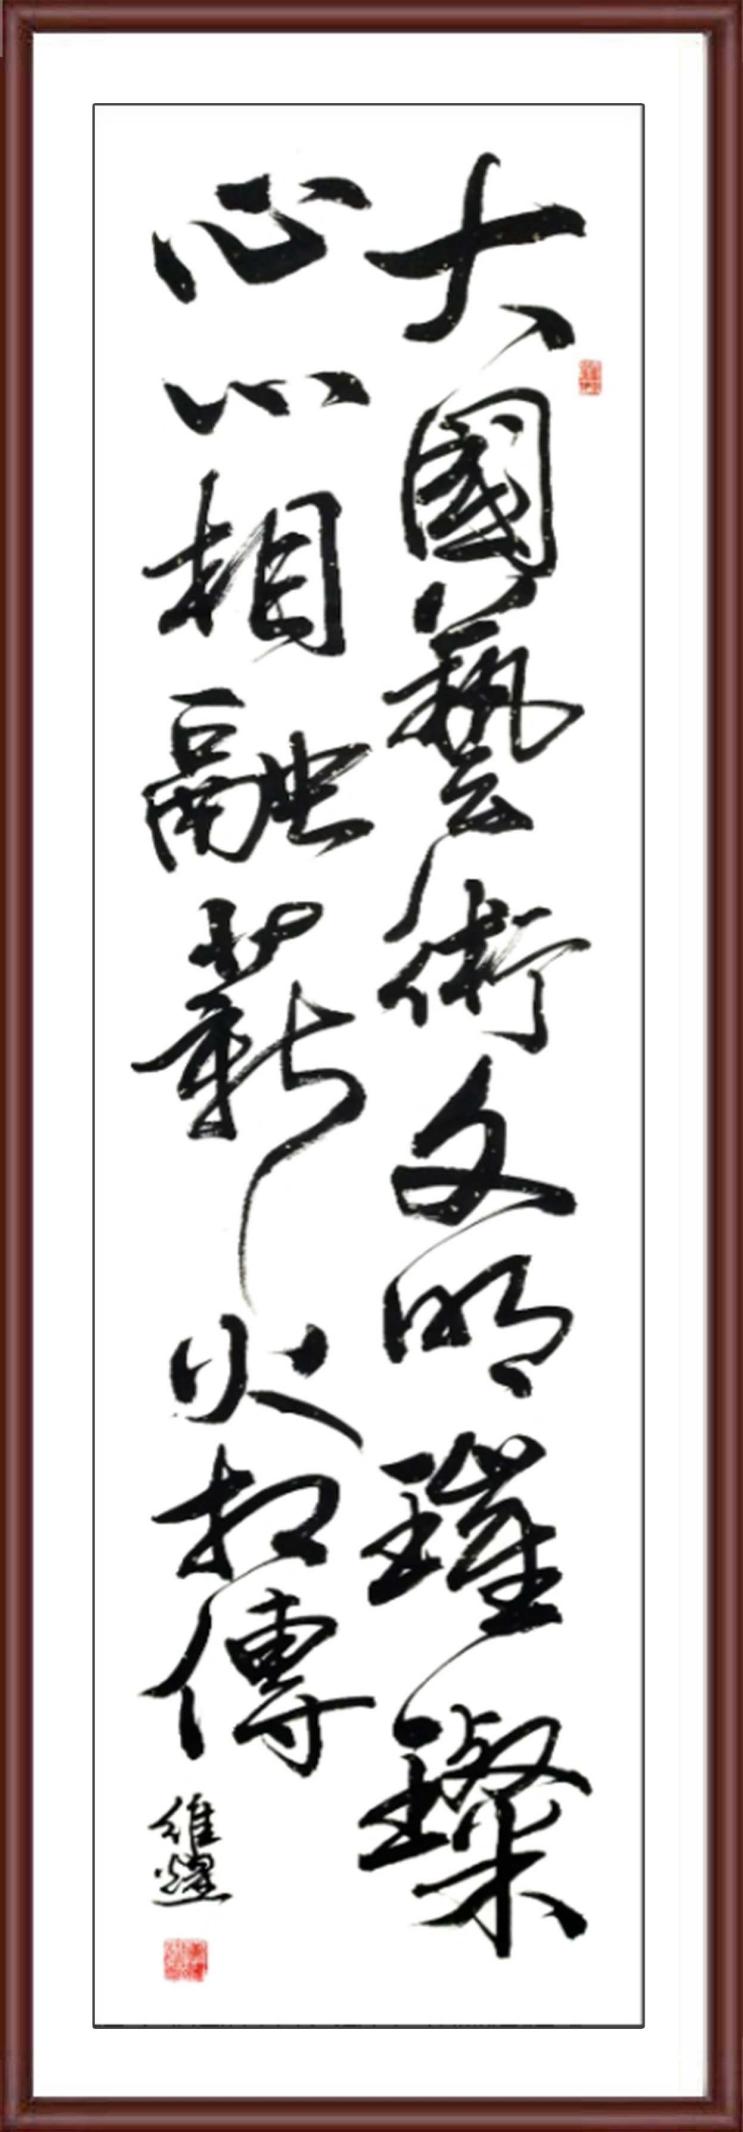 大國藝術文明璀璨
心心相融薪火相傳
維